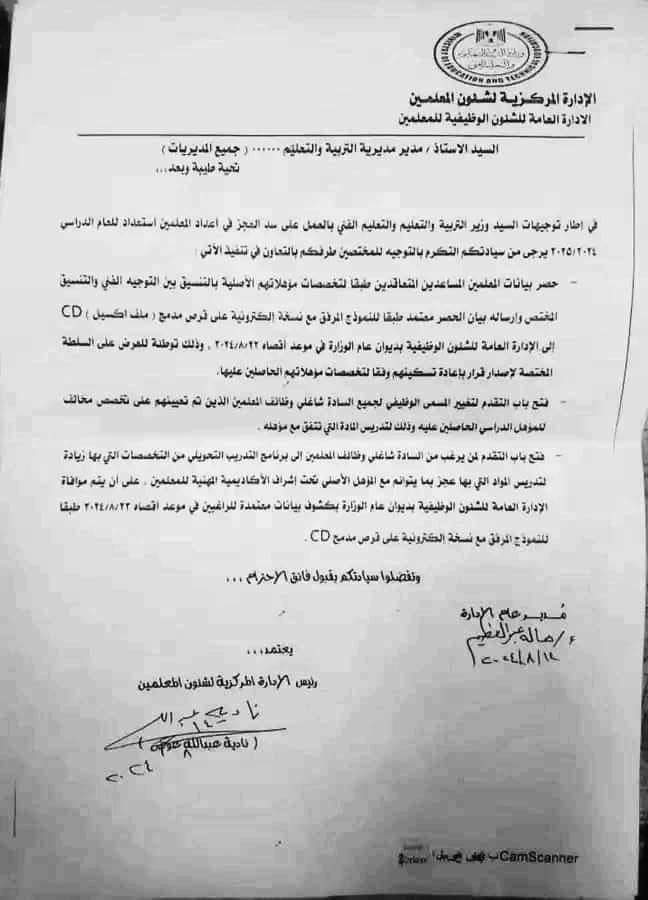 EDUCATION AND TECHNICAL
الإدارة المركزية لشئون المعلمين
الادارة العامة للشئون الوظيفية للمعلمين
السيد الاستاذ / مدير مديرية التربية والتعليم ...... ( جميع المديريات )
تحية طيبة وبعد،،،
في إطار توجيهات السيد وزير التربية والتعليم والتعليم الفني بالعمل على سد العجز في أعداد المعلمين استعداد للعام الدراسي
٢٠٢٥/٢٠٢٤ يرجى من سيادتكم التكرم بالتوجيه للمختصين طرفكم بالتعاون في تنفيذ الآتي :
- حصر بيانات المعلمين المساعدين المتعاقدين طبقا لتخصصات مؤهلاتهم الأصلية بالتنسيق بين التوجيه الفني والتنسيق
المختص وإرساله بيان الحصر معتمد طبقا للنموذج المرفق مع نسخة إلكترونية على قرص مدمج ( ملف اكسيل ) CD
إلى الإدارة العامة للشئون الوظيفية بديوان عام الوزارة في موعد أقصاه ٢٠٢٤/٨/٢٢ ، وذلك توطئة للعرض على السلطة
المختصة لإصدار قرار بإعادة تسكينهم وفقا لتخصصات مؤهلاتهم الحاصلين عليها.
- فتح باب التقدم لتغيير المسمى الوظيفي لجميع السادة شاغلي وظائف المعلمين الذين تم تعيينهم على تخصص مخالف
للمؤهل الدراسي الحاصلين عليه وذلك لتدريس المادة التي تتفق مع مؤهله .
- فتح باب التقدم لمن يرغب من السادة شاغلي وظائف المعلمين إلى برنامج التدريب التحويلي من التخصصات التي بها زيادة
لتدريس المواد التي بها عجز بما يتوائم مع المؤهل الأصلي تحت إشراف الأكاديمية المهنية للمعلمين ، على أن يتم موافاة
الإدارة العامة للشئون الوظيفية بديوان عام الوزارة بكشوف بيانات معتمدة للراغبين في موعد أقصاه ٢٠٢٤/٨/٢٢ طبقا
للنموذج المرفق مع نسخة إلكترونية على قرص مدمج CD .
وتفضلوا سيادتكم بقبول فائق الاحترام ،،،
مدير عام الإدارة
هالة عبدالعظيم
٢٠٢٤/٨/١٤
يعتمد،،،
رئيس الإدارة المركزية لشئون المعلمين
نادية عبد الله
١٤
( نادية عبدالله )
٨
٢٠٢٤
CamScanner